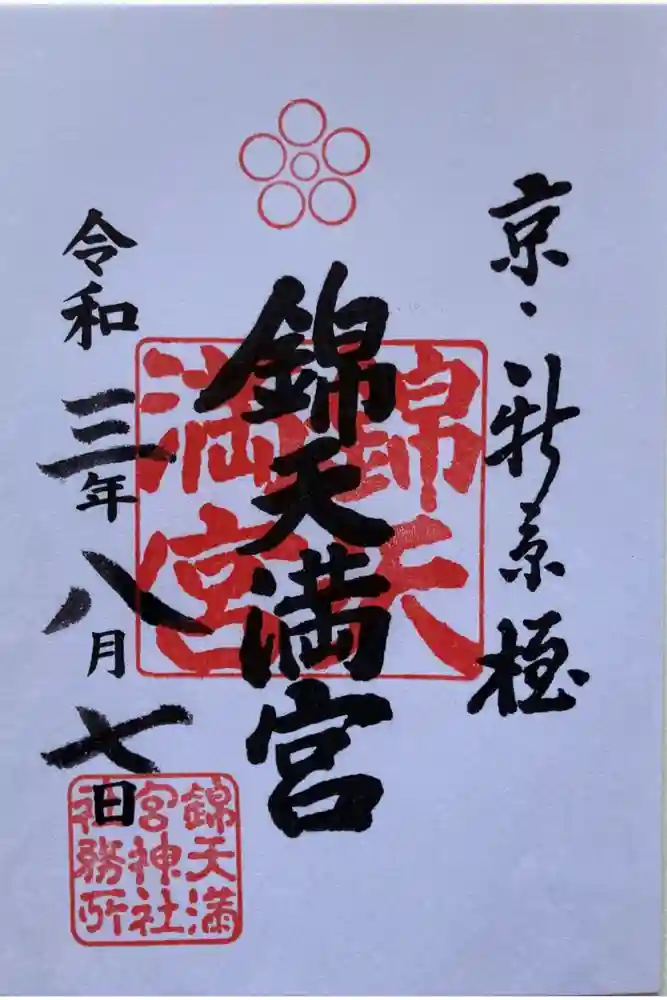 京・新京極
錦天満宮
錦天
満宮
令和三年八月七日
錦天満
宮神社
社務所